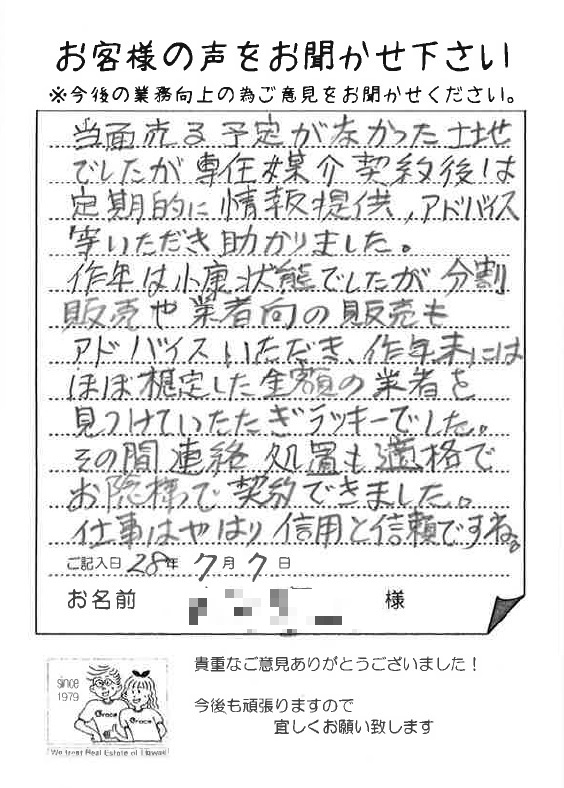 お客様の声をお聞かせ下さい
※今後の業務向上の為ご意見をお聞かせください。
当面売る予定がなかった土地
でしたが専任媒介契約後は
定期的に情報提供、アドバイス
等いただき助かりました。
昨年は小康状態でしたが分割
販売や業者向の販売も
アドバイスいただき、昨年末には
ほぼ想定した金額の業者を
見つけていただきラッキーでした。
その間連絡処置も適格で
お陰様で契約できました。
仕事はやはり信用と信頼ですね。
ご記入日 28年 7月 7日
お名前 様
since
1979
Grace
Grace
貴重なご意見ありがとうございました！
今後も頑張りますので
宜しくお願い致します
We trust Real Estate of Hawaii